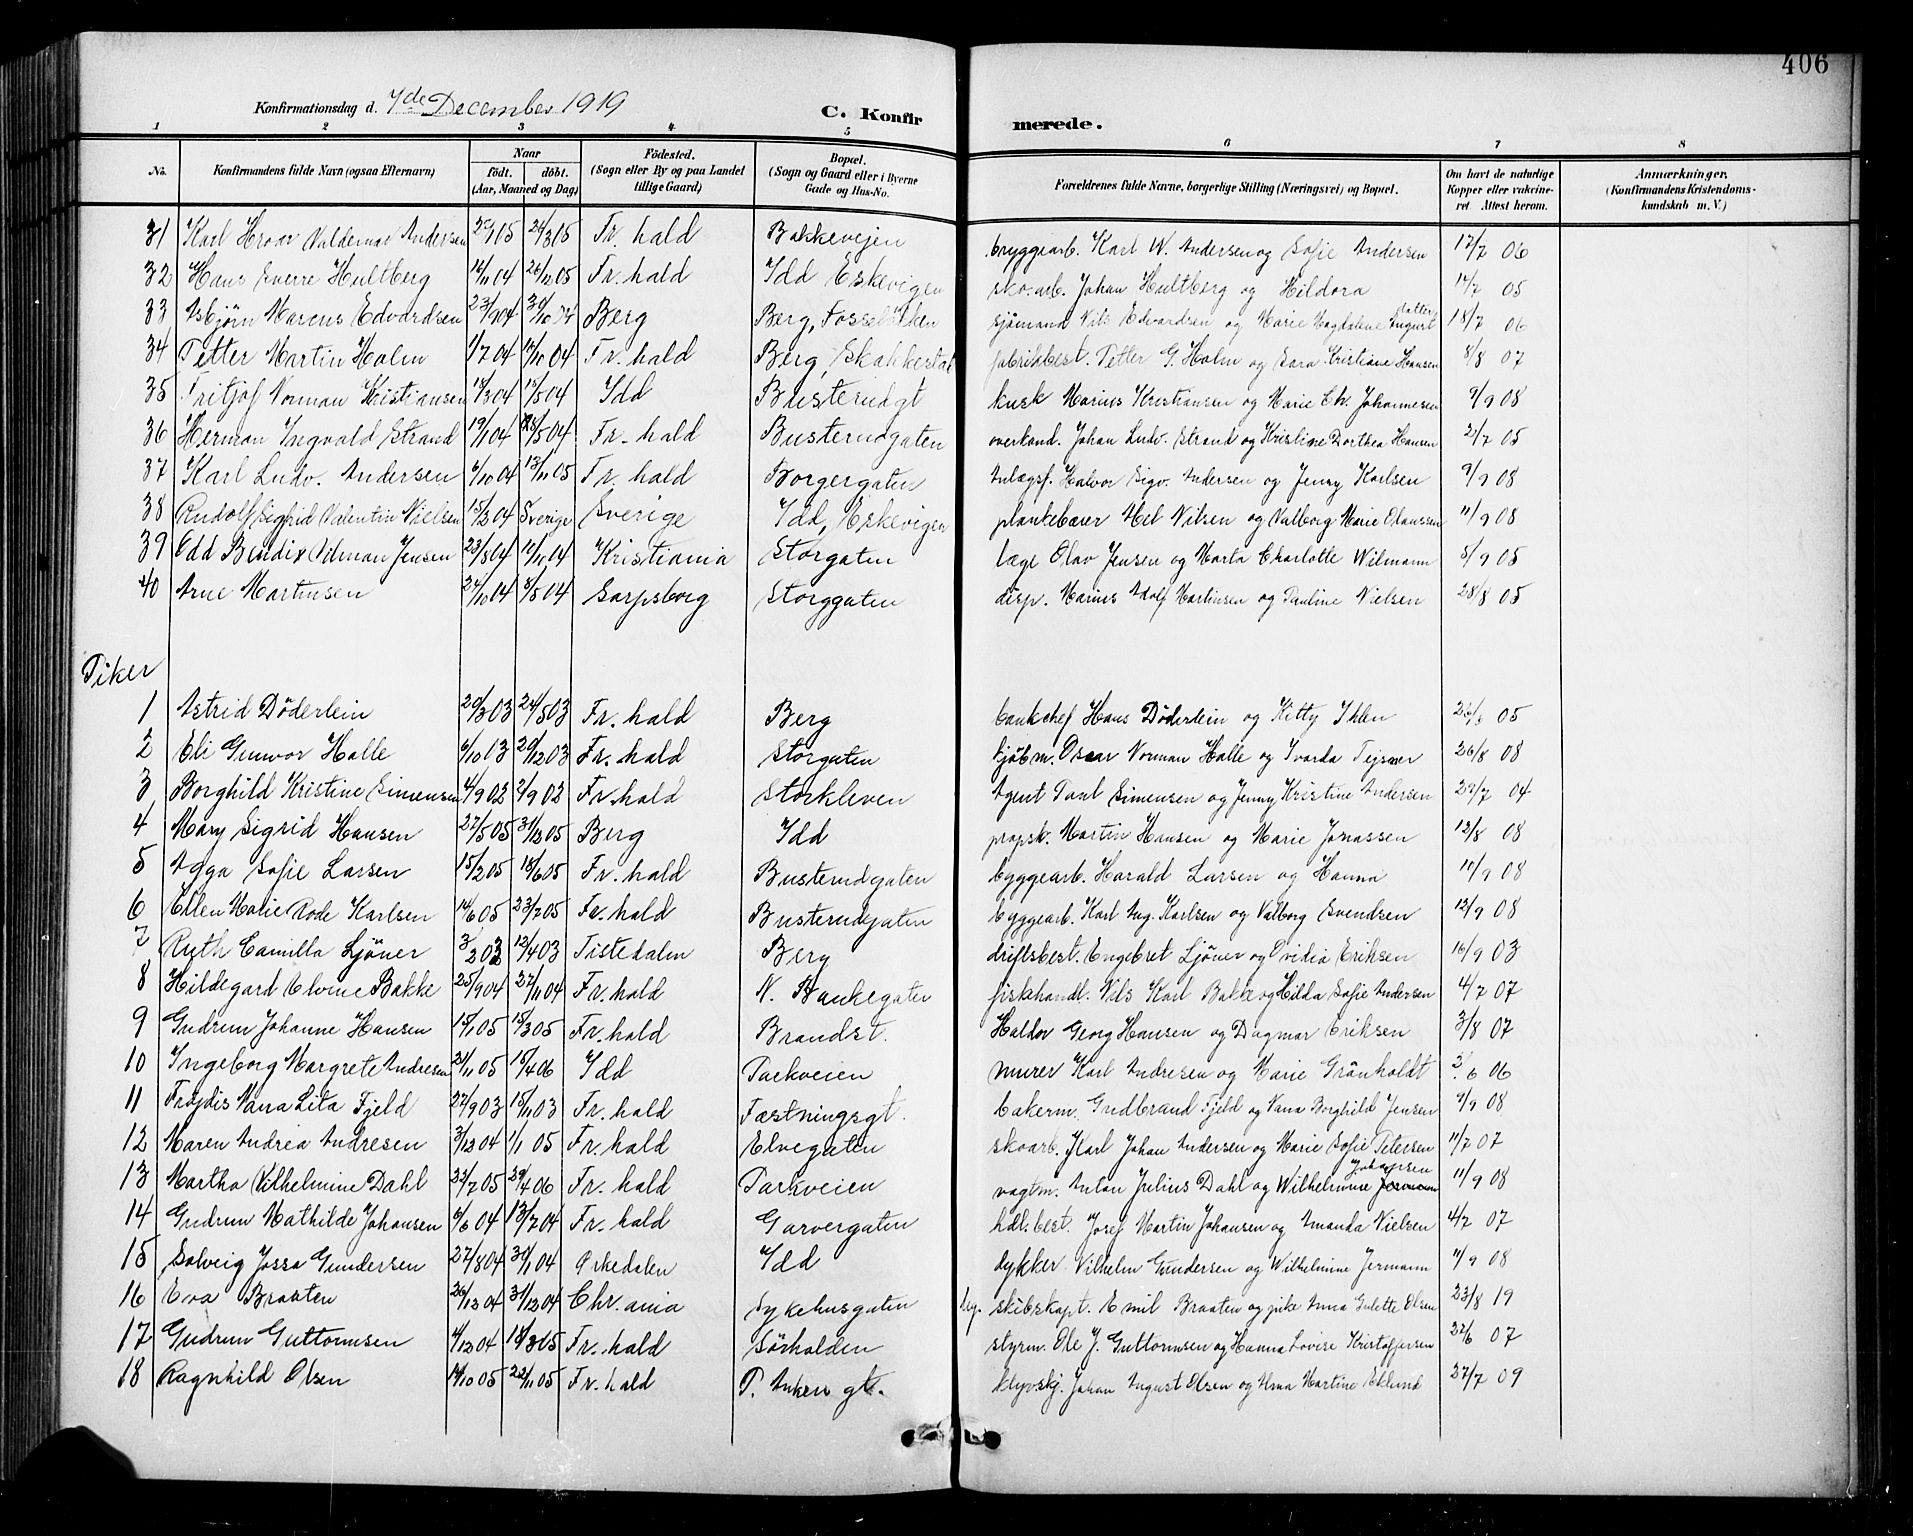 406
Konfirmationsdag d. 7de December 1919 C. Konfirmerede.
1 2 3 4 5 6 7 8
No. Konfirmandens fulde Navn (ogsaa Efternavn) Naar født. døbt. (Aar, Maaned og Dag) Födested. (Sogn eller By og paa Landet tillige Gaard) Bopæl. (Sogn og Gaard eller i Byerne Gade og Hus-No. Forældrenes fulde Navne, borgerlige Stilling (Næringsvei) og Bopæl. Om havt de naturlige Kopper eller vakcineret. Attest herom. Anmærkninger. (Konfirmandens Kristendomskundskab m. V.)
31 Karl Hroar Valdemar Andersen 05 24/3 05 Fr. hald Bakkevejen bryggearb. Karl W. Andersen og Sofie Andersen 17/7 06
32 Hans Sverre Hultberg 16/11 04 26/12 05 Fr. hald Idd Eskevigen sko.arb. Johan Hultberg og Hildora 14/7 05
33 Asbjörn Marcus Edvardsen Berg Berg, Fosseløkken sjömand Nils Edvardsen og Marie Magdalene August datter 18/7 06
34 Petter Martin Holm 1/7 04 16/10 04 Fr. hald Berg, Skakkestad fabrikbest. Petter G. Holm og Sara Kristiane Hansen 8/8 07
35 Fritjof Norman Kristiansen 18/3 04 15/5 04 Idd Busterudgt kusk Marius Kristiansen og Marie Ch. Johannesen 9/9 08
36 Herman Ingvald Strand 19/1 04 28/5 04 Fr. hald Busterudgaten overkond. Johan Ludv. Strand og Kristine Dorthea Hansen 2/7 05
37 Karl Ludv. Andersen 6/10 04 13/11 05 Fr. hald Borgergaten Anlægsf. Halvor Sigv. Andersen og Jenny Karlsen 9/9 08
38 Rudolf Sigfrid Valentin Nielsen 15/2 04 Sverige Sverige Idd, Eskevigen plankebærer Nils Nilsen og Valborg Marie Olaussen 11/9 08
39 Odd Bendix Vilman Jensen 23/8 04 12/11 04 Kristiania Storgaten læge Olav Jensen og Marta Charlotte Wilmann 5/9 05
40 Arne Martinsen 24/10 04 8/5 04 Sarpsborg Storggaten disp. Marius Adolf Martinsen og Pauline Nielsen 28/8 05
Piker
1 Astrid Döderlein 20/3 03 24/5 03 Fr. hald Berg bankchef Hans Döderlein og Kitty Ihlen 05
2 Eli Gunvor Halle 6/10 03 20/12 03 Fr. hald Storgaten kjöbm. Oscar Norman Halle og Ivarda Tejsner 26/8 08
3 Borghild Kristine Simensen 4/9 02 2/9 02 Fr. hald Storkleven Agent Paul Simensen og Jenny Kristine Andersen 04
4 Mary Sigrid Hansen 27/5 05 31/12 05 Berg Idd propsk. Martin Hansen og Marie Jonassen 12/8 08
5 Agga Sofie Larsen 15/2 05 18/6 05 Fr. hald Busterudgaten byggearb. Harald Larsen og Hanna 11/9 08
6 Ellen Marie Rode Karlsen 14/6 05 23/7 05 Fr. hald Busterudgaten byggearb. Karl Aug. Karlsen og Valborg Svendsen 12/9 08
7 Ruth Camilla Ljöner 3/2 03 12/4 03 Tistedalen Berg driftsbest. Engebret Ljöner og Ovidia Eriksen 16/9 03
8 Hildegard Elvine Bakke 25/9 04 27/11 04 Fr. hald N. Bankegaten fiskehandl. Nils Karl Bakke og Hilda Sofie Andersen 4/7 07
9 Gudrun Johanne Hansen 15/1 05 15/3 05 Fr. hald Brandst. Haldor Georg Hansen og Dagmar Eriksen 3/8 07
10 Ingeborg Margrete Andresen 21/11 05 15/4 06 Idd Parkveien murer Karl Andresen og Marie Grönholdt 06
11 Frøjdis Nana Lita Fjeld 27/9 03 15/11 03 Fr. hald Fæstningsgt. bakerm. Gudbrand Fjeld og Nana Borghild Jensen 08
12 Maren Andrea Andresen 3/12 04 1/1 05 Fr. hald Elvegaten skoarb. Karl Johan Andersen og Marie Sofie Petersen 11/7 07
13 Martha Vilhelmine Dahl 22/7 05 29/4 06 Fr. hald Parkveien vagtm. Anton Julius Dahl og Wilhelmine Johansen 11/9 08
14 Gudrun Mathilde Johansen 6/6 04 13/7 04 Fr. hald Garvergaten hdl. best. Josef Martin Johansen og Amanda Nielsen 4/7 07
15 Solveig Jossa Gundersen 27/8 04 Orkedalen Idd dykker. Vilhelm Gundersen og Wilhelmine Jermann 11/9 08
16 Eva Braaten 26/12 04 31/12 04 Chr.ania Sykehusgaten skibskapt. Emil Braaten og pike Anna Gulette Olsen 23/8 19
17 Gudrun Guttormsen 4/12 04 18/3 05 Fr. hald Sörhalden styrm. Ole J. Guttormsen og Hanna Lovise Kristoffersen 22/6 07
18 Ragnhild Olsen 14/10 05 22/11 05 Fr. hald P. Ankers gt. Johan August Olsen og Alma Martine Eklund 27/7 09